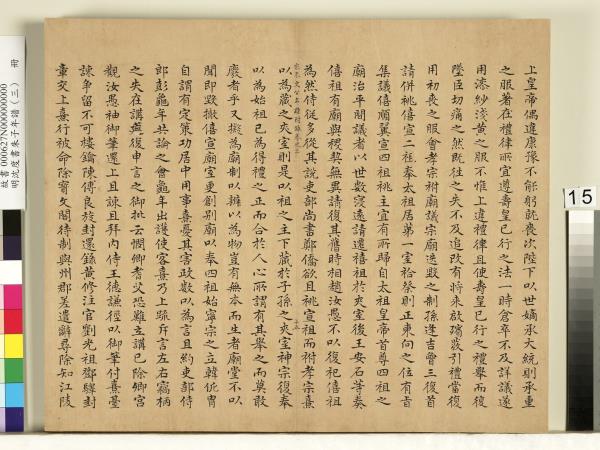 上皇帝偶違康豫不能躬就喪次陛下以世嫡承大統則承重
之服著在禮律所宜遵壽皇已行之法一時倉卒不及詳議遂
用漆紗淺黃之服不惟上違禮律且使壽皇已行之禮舉而復
墜臣切痛之然既往之失不及追改有將來啟殯發引禮當復
用初喪之服會孝宗祔廟議宗廟迭毀之制孫逢吉曾三復首
請併祧僖宣二祖奉太祖居第一室祫祭則正東向之位有旨
集議僖順翼宣四祖祧主宜有所歸自太祖皇帝首尊四祖之
廟治平間議者以世數寖遠請遷僖祖於夾室後王安石等奏
僖祖有廟與稷契無異請復其舊時相趙汝愚不以復祀僖祖
為然侍從多從其說吏部尚書鄭僑欲且祧宣祖而祔孝宗熹
以為藏之夾室則是以祖之主下藏於子孫之夾室神宗復奉
以為始祖已為得禮之正而合於人心所謂有其舉之而莫敢
廢者乎又擬為廟制以辯以為物豈有無本而生者廟堂不以
聞即毀撤僖宣廟室更創別廟以奉四祖始寧宗之立韓侂冑
自謂有定策功居中用事熹憂其害政數以為言且約吏部侍
郎彭龜年共論之會龜年出護使客熹乃上疏斥言左右竊柄
之失在講筵復申言之御批云憫卿耆艾恐難立講已除卿宮
觀汝愚袖御筆還上且諫且拜內侍王德謙徑以御筆付熹臺
諫爭留不可樓鑰陳傅良旋封還錄黃修注官劉光祖鄧驛封
章交上熹行被命除寶文閣待制與州郡差遣辭尋除知江陵
故書 000627N000000000
明沈度書朱子年譜（三）
15